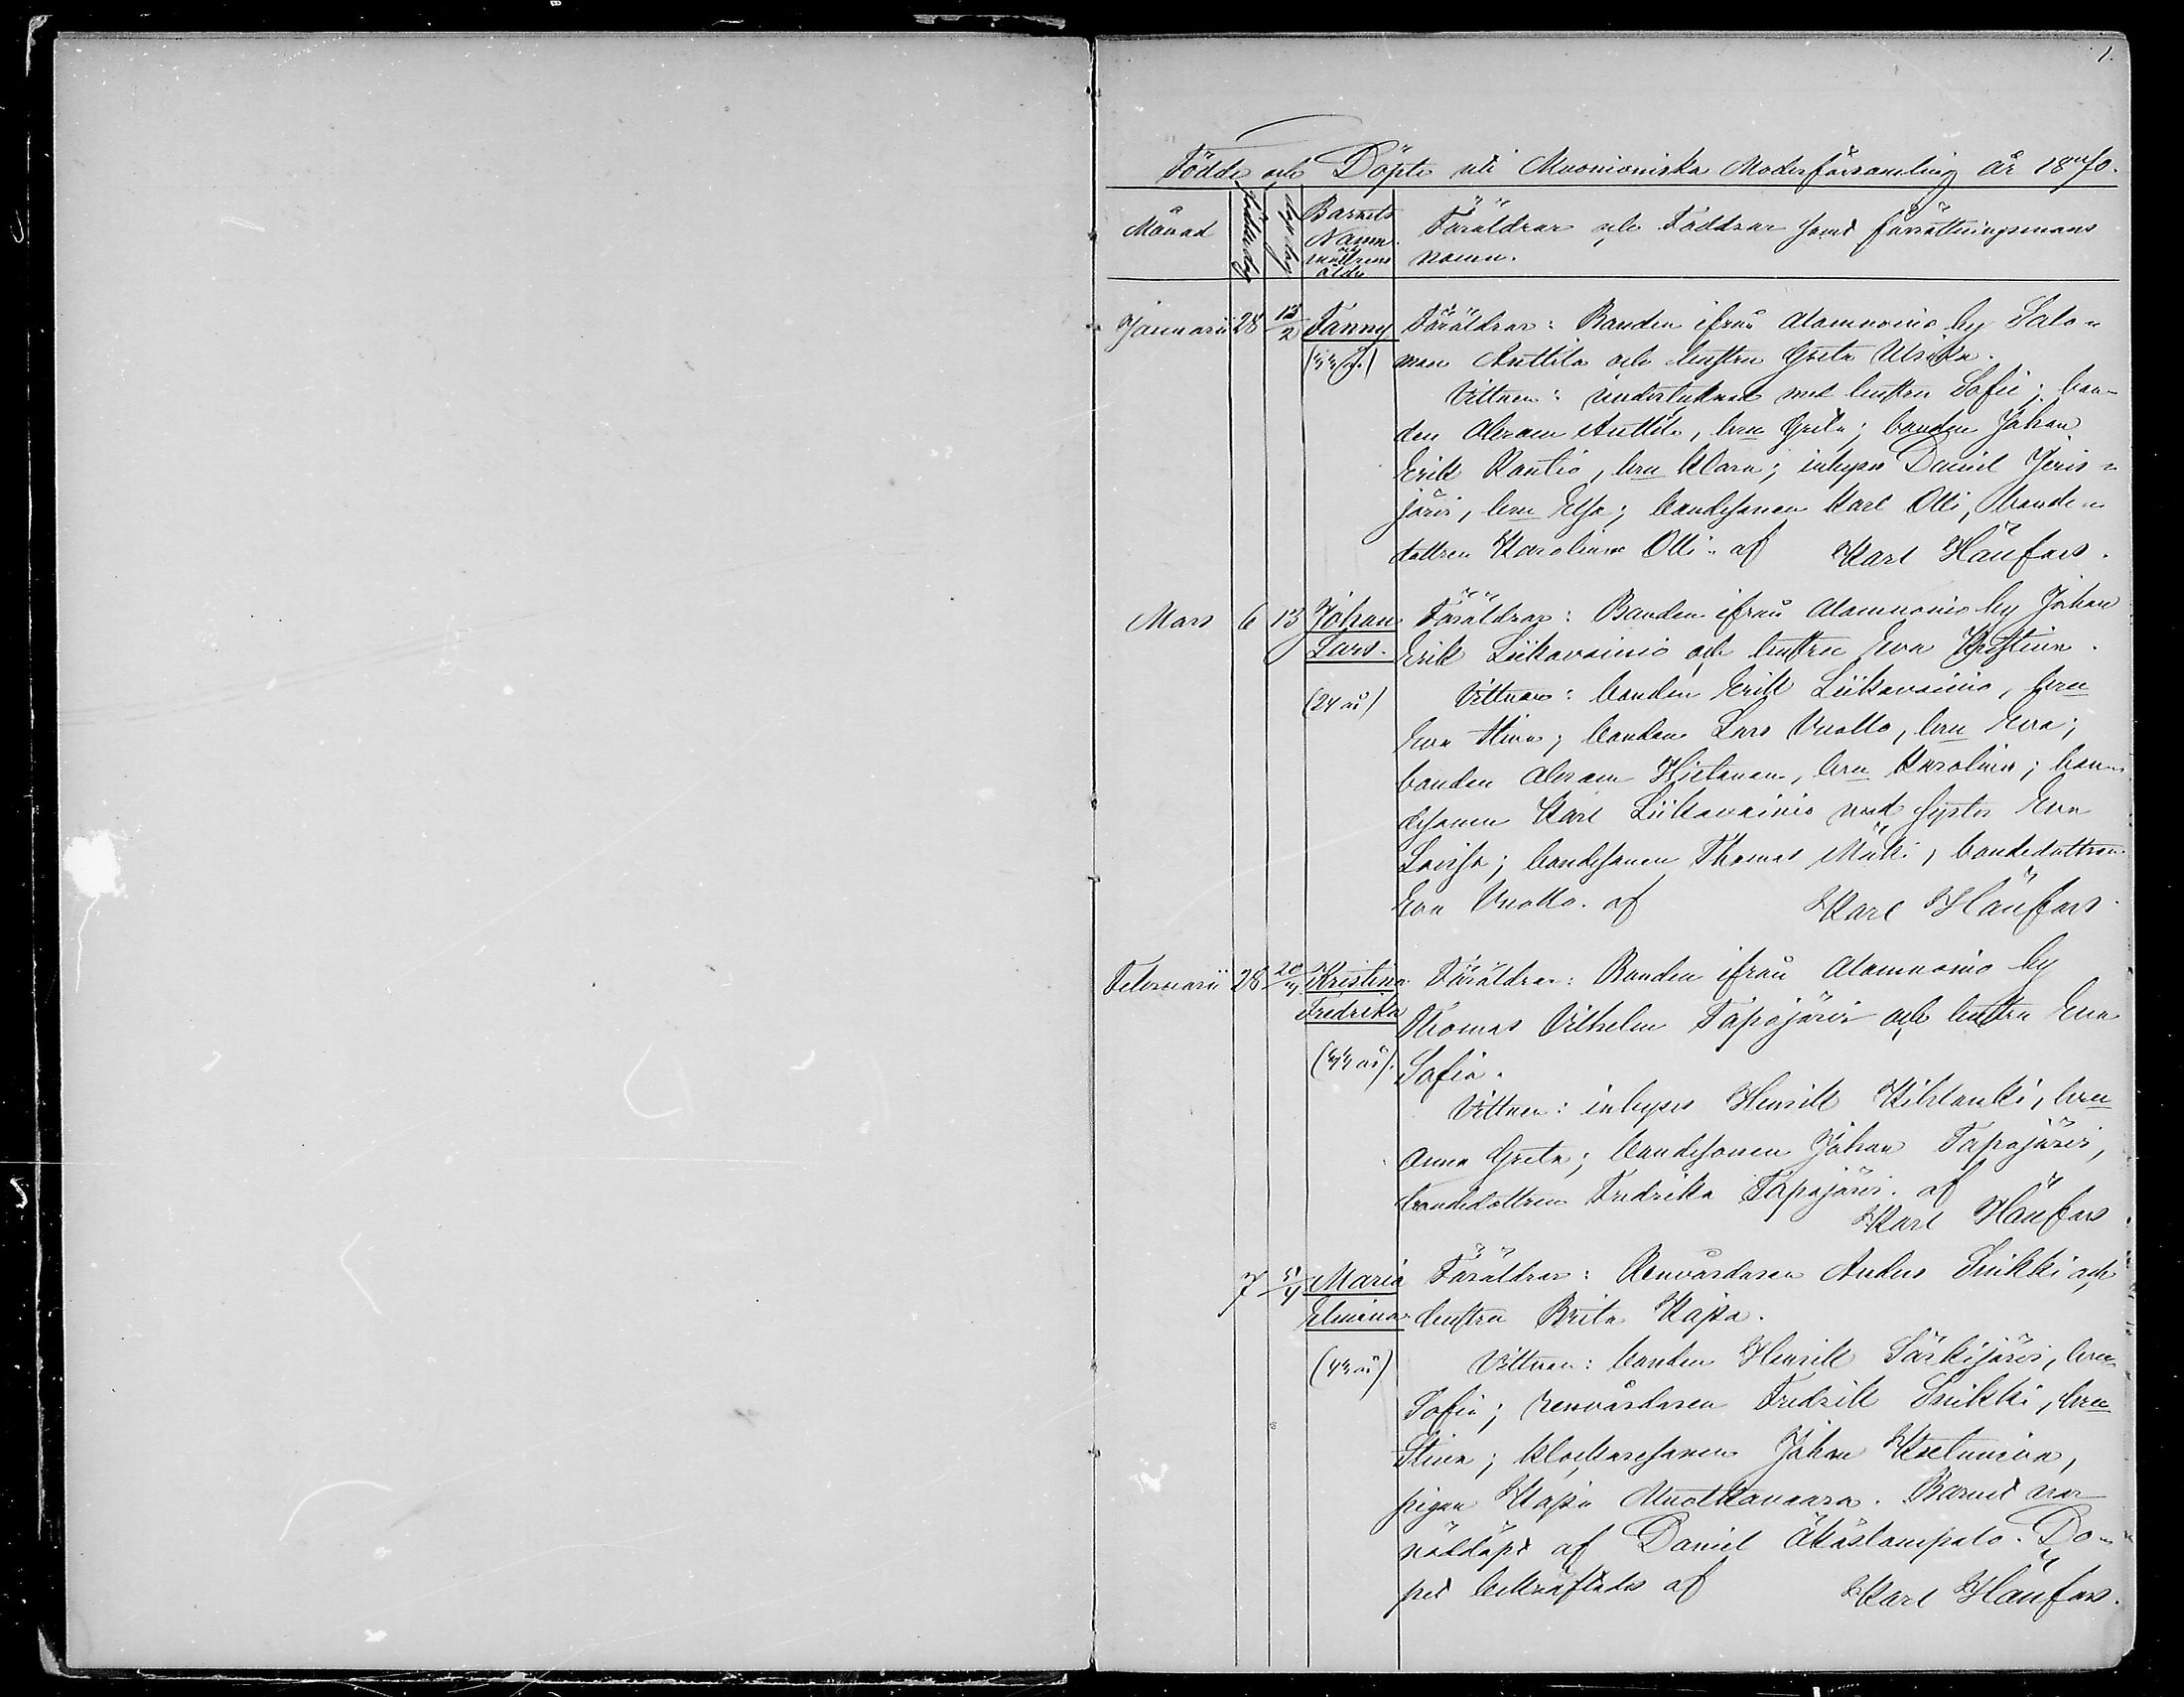 1.
Födde och Döpte uti Muonioniska Moderförsamling år 1870.
Månad
Barnets Namn och modrens ålder
Föräldrar och Faddrar samt förrättningsmans
namn.
Januarii 28 13/2 Fanny Föräldrar: Bonden ifrån Alamuonio by Salo-
mon Anttila och hustru Greta Ulrika.
Vittnen: undertecknad med hustru Sofie; bon-
den Abram Anttila, hru Greta; bonden Johan
Erik Rautio, hru Klara; inhyses Daniel Jeris-
järvi, hru Elsa; bondesonen Karl Olli, bonde-
dottren Karolina Olli. af Karl Hänfors.
Mars 6 13 Johan Föräldrar: Bonden ifrån Alamuonio by Johan
Lars. Erik Liikavainio och hustru Eva Kristina.
(24 år) Vittnen: bonden Erik Liikavainio, hru
Eva Stina; bonden Lars Vuollo, hru Eva;
bonden Abram Hietanen, hru Karolina; bon-
desonen Karl Liikavainio med syster Eva
Lovisa; bondesonen Thomas Mäki, bondedottren
Eva Vuollo. af Karl Hänfors.
Februarii 28 20/3 Kristina Föräldrar: Bonden ifrån Alamuonio by
Fredrika Thomas Vilhelm Tapojärvi och hustru Eva
Sofia.
Vittnen: inhyses Henrik Kihlanki, hru
Anna Greta; bondesonen Johan Tapojärvi,
bondedottren Fredrika Tapojärvi. af
Karl Hänfors.
7 5/4 Maria Föräldrar: Renvårdaren Anders Snikki och
Elmina hustru Brita Kajsa.
(43 år) Vittnen: bonden Henrik Särkijärvi, hru
Sofia; renvårdaren Fredrik Snikki, hru
Stina; klockaresonen Johan Keltamina,
pigan Kajsa Muotkavaara. Barnet var
nöddöpt af Daniel Äkäslompolo. Do-
pet bekräftades af Karl Hänfors.